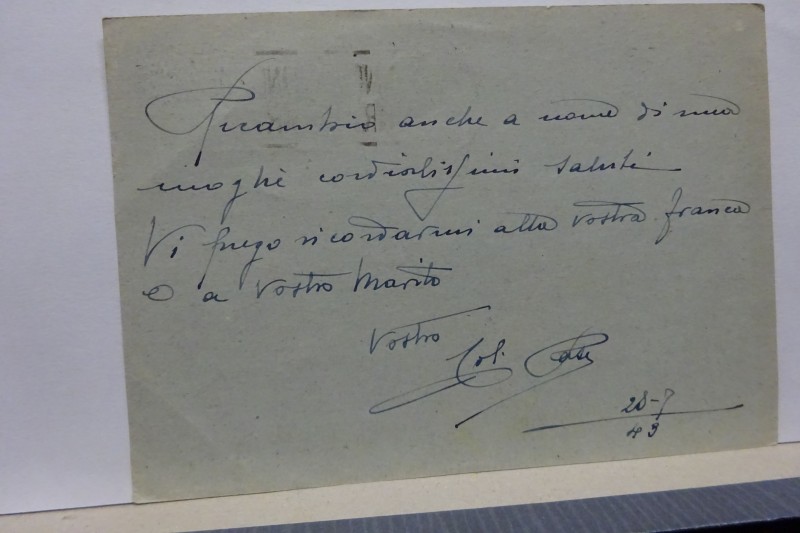 Ricambio anche a nome di mia
moglie cordialissimi saluti
Vi prego ricordarmi alla vostra franca
e a vostro Marito
vostro
28-7
43